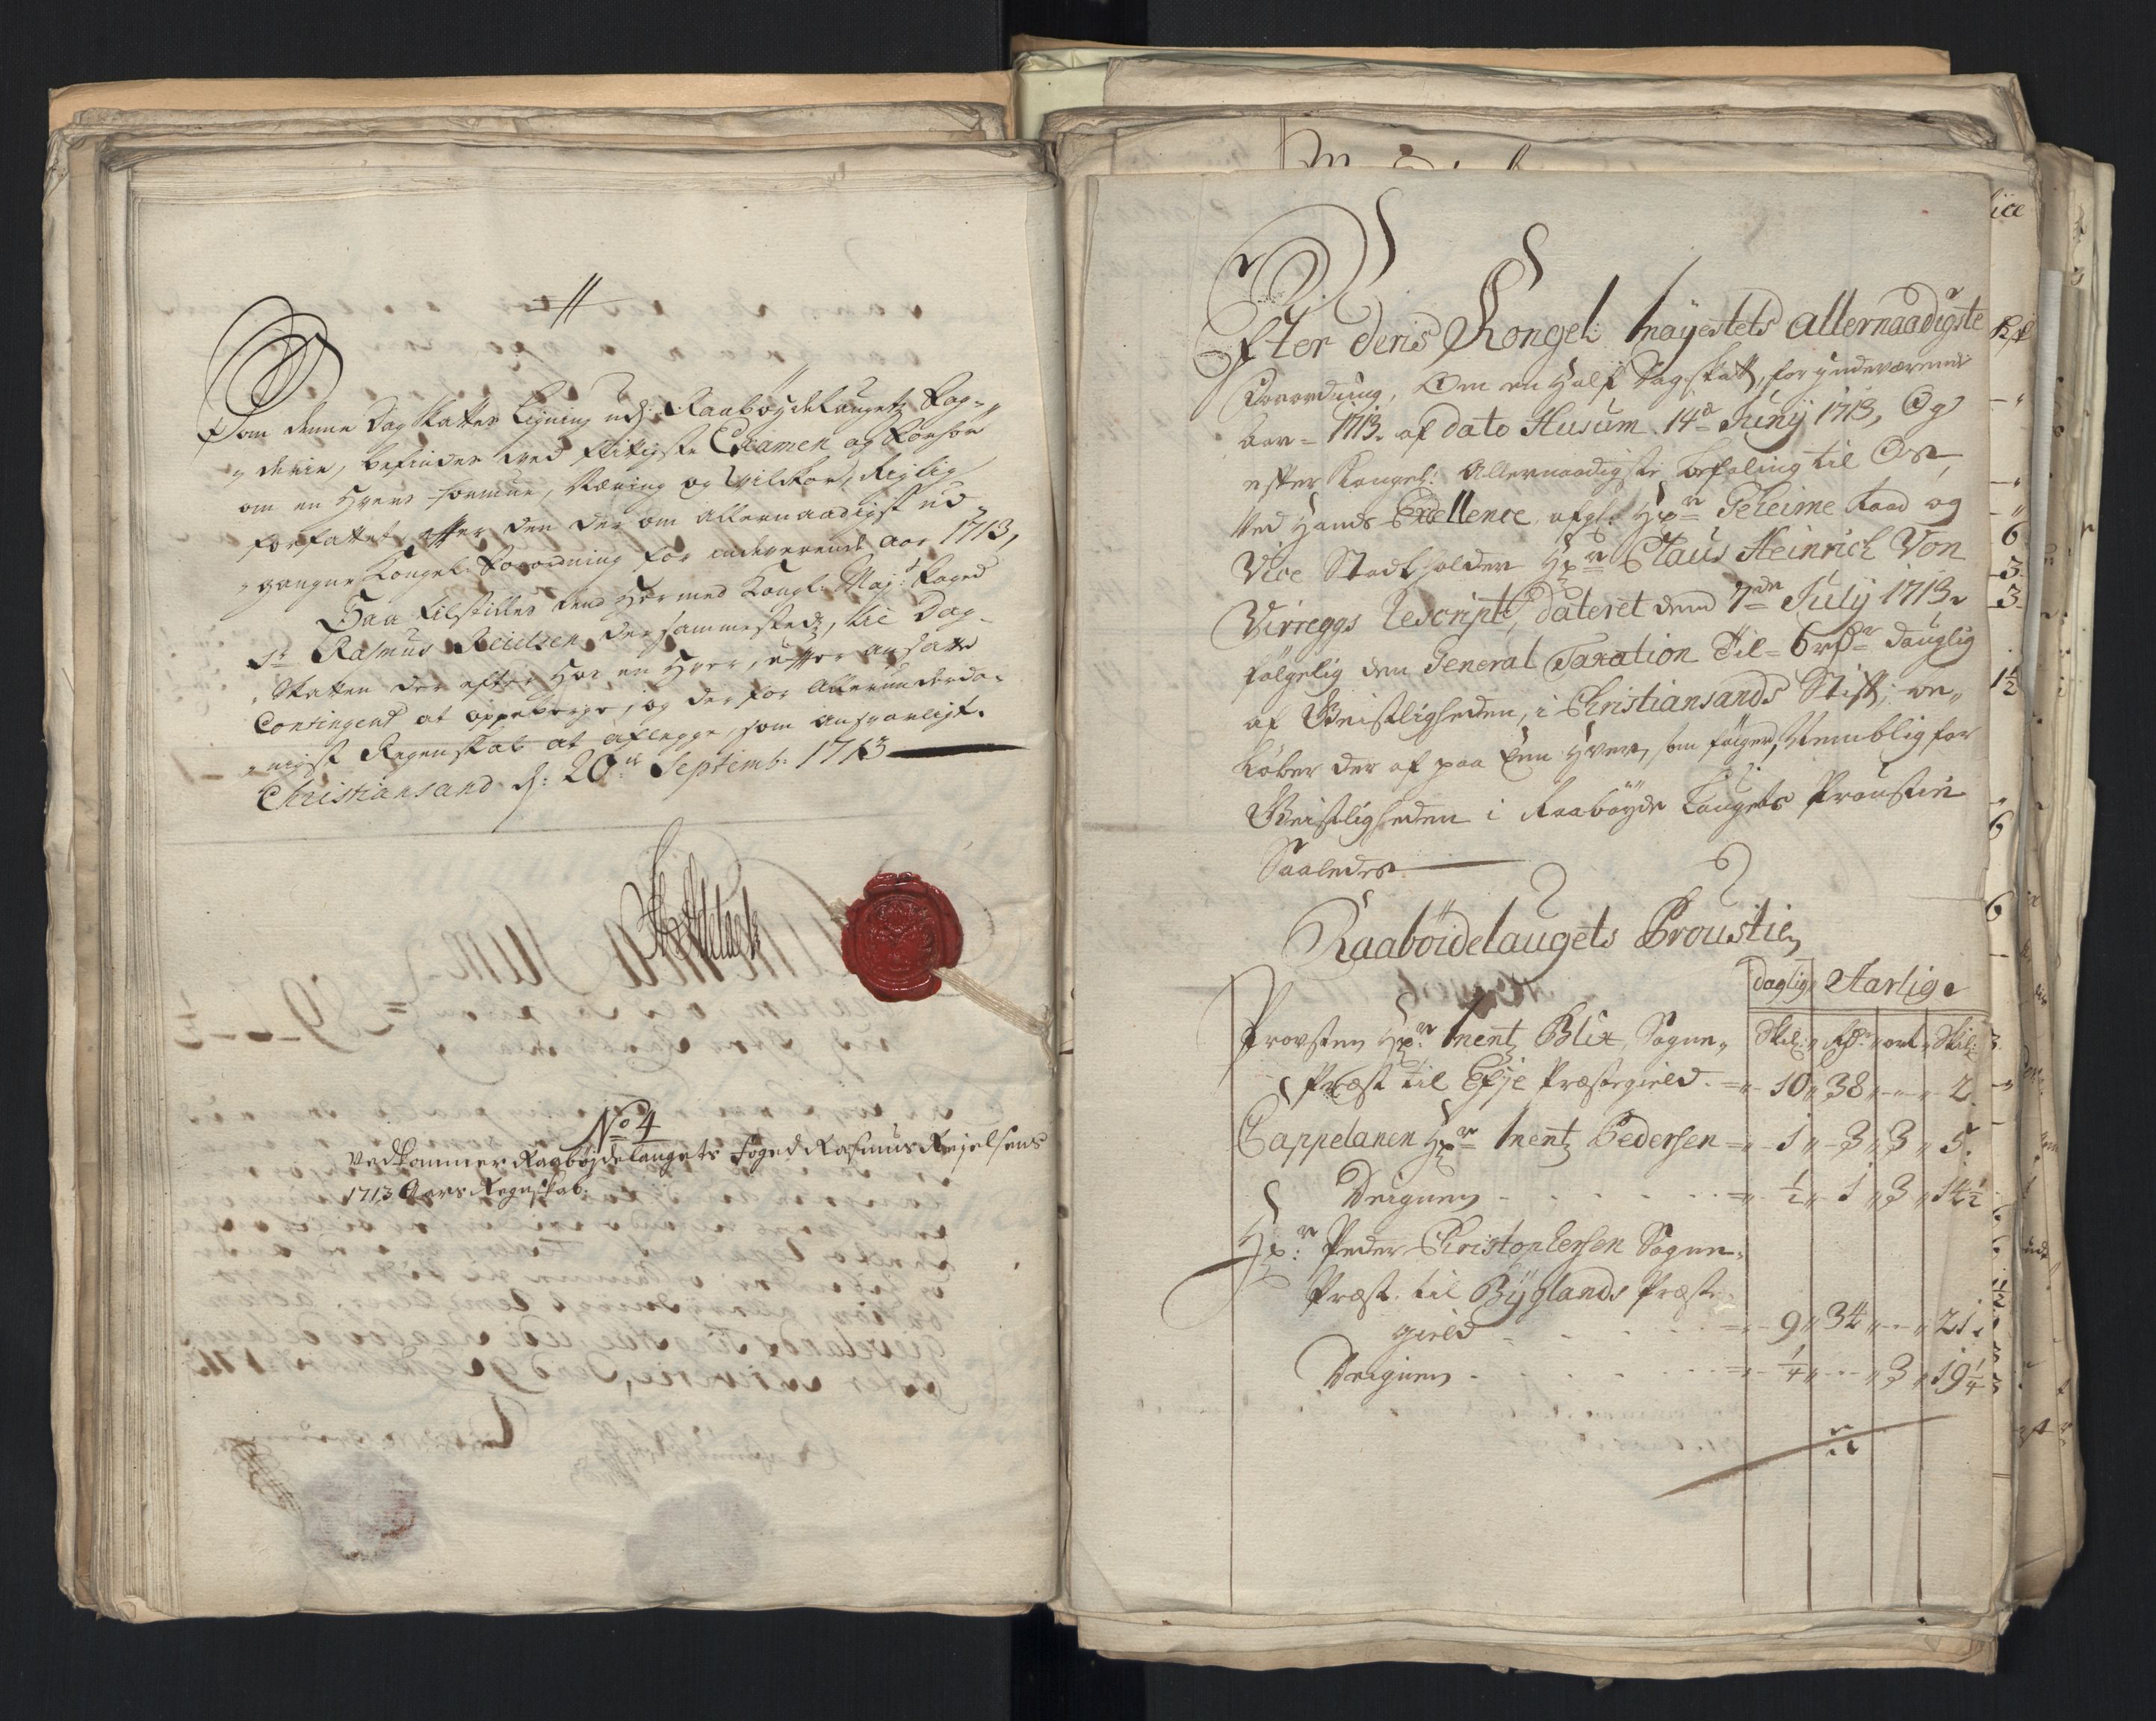 Som denne Dagskattes Ligning udj Raabøydelaugetz Fog-
derie, befindes ved flittigste Examen og Forhør
om en Hvers formue, Næring og Vilkor, Rigtig
forfattet effter den der om allernaadigst ud-
gangne Kongel: Forordning for indeværende aar 1713,
Saa tilstilles dend Hermed Kongl: Maj:ts Foged
Sr Rasmus Reielsen dersammesteds, die Dag-
Skatten der efter Hos en Hver, effter ansatte
Contingent at oppeberge, og derfor Allerunderda-
nigst Regenskab at aflegge, som ansvarligt.
Christiansand d: 20de Septemb: 1713
No 4
Vedkommer Raabøjdelaugets Foged Rasmus Rejelsens
1713 Aars Regnskab.
Efter Deris Kongel: Mayestets allernaadigste
Forordning, Om en Half Dagskatt, for indeværende
Aar 1713. af Dato Husum 14de Juny 1713, Og
efter Kongel: Allernaadigste befaling til Os,
Ved Hands Excellence, afgl: Hr: Geheime Raad og
Vice Stadtholder Hr: Claus Heinrich Von
Virreggs Rescript, dateret dend 7de July 1713.
følgelig den General Taxation Til 6 rdr dauglig
af Geistligheden, i Christiansands Stift; be-
løber der af paa Een Hver, som følger, Nemblig for
Geistligheden i Raabøyde Laugets Proustie
Saaledes
Raaböidelaugets Proustie
daglig Aarlig
Provsten Hr: Mentz Blix, Sogne- Skil: Rdr ort Skil:
Præst til Efje Præstegield 10 38 - 2
Cappelanen Hr: Mentz Pedersen 1 3 3 5
Deignen ½ 1 3 14½
Hr: Peder Christophersen Sogne-
Præst til Bÿglands Præste-
gield 9 34 - 21
Deignen ¼ - 3 19¼